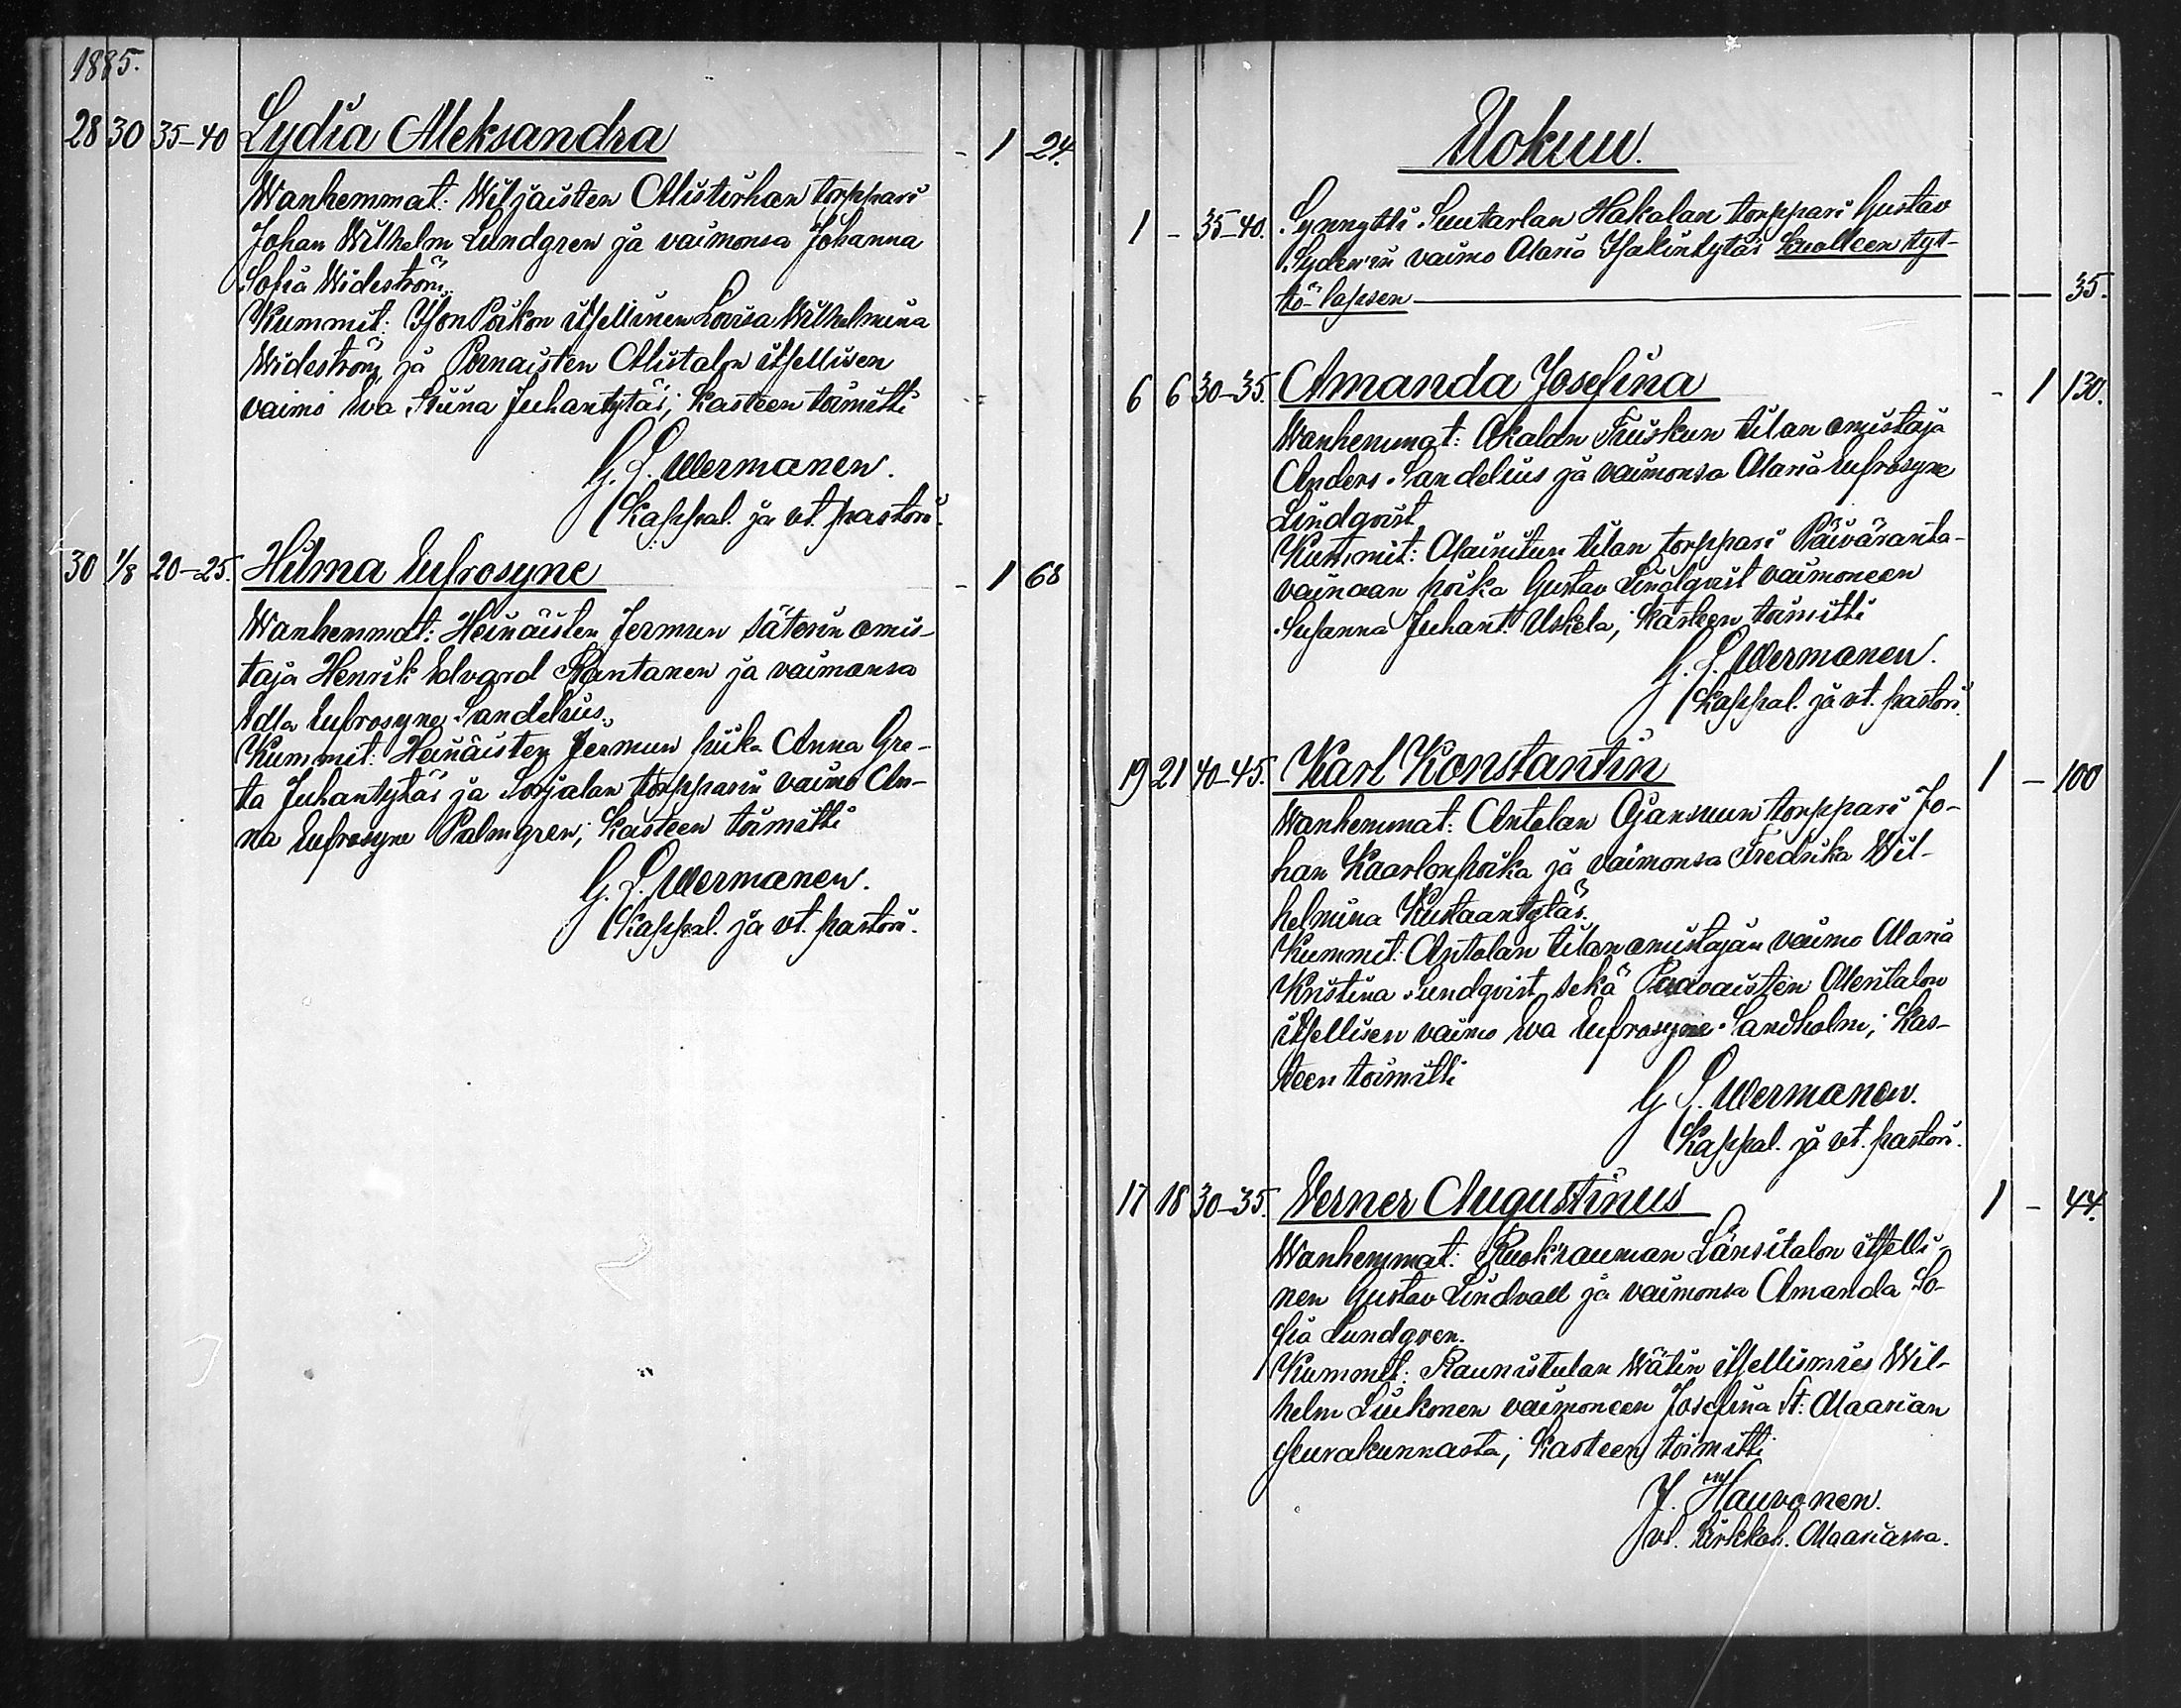 1885.
28 30 35-40 Lydia Aleksandra - 1 24.
Wanhemmat: Wiljaisten Alistirhan torppari
Johan Wilhelm Lundgren ja vaimonsa Johanna
Sofia Wideström.
Kummit: Ison Poikon itsellinen Lovisa Wilhelmina
Wideström ja Pornaisten Alistalon itsellisen
vaimo Eva Stiina Juhantytär; Kasteen toimitti
G. L. Mermanen.
Kappal. ja vt. pastori.
30 1/8 20-25. Hilma Eufrosyne - 1 68
Wanhemmat: Heinäisten Jermun säterin omis-
taja Henrik Edvard Rantanen ja vaimonsa
Edla Eufrosyne Sandelius.
Kummit: Heinäisten Jermun piika Anna Gre-
ta Juhantytär ja Sorjalan torpparin vaimo An-
na Eufrosyne Palmgren; Kasteen toimitti
G. L. Mermanen.
Kappal. ja vt. pastori.
Elokuu.
1 - 35-40. Synnytti Suutarlan Hakalan torppari Gustav
vaimo Maria Isakintytär kuolleen tyt-
tö-lapsen — — 35.
6 6 30-35. Amanda Josefina - 1 130.
Wanhemmat: Akalan Friiskun tilan omistaja
Anders Sandelius ja vaimonsa Maria Eufrosyne
Lindqvist
Kummit: tilan torppari Päiväranta-
vainaan poika Gustav Lindqvist vaimoneen
Susanna Juhant. Uskela; Kasteen toimitti
G. L. Mermanen.
Kappal. ja vt. pastori.
19 21 40-45. Karl Konstantin 1 - 100
Wanhemmat: Antolan Ojansuun torppari Jo-
han Kaarlonpoika ja vaimonsa Fredrika Wil-
helmina Kustaantytär.
Kummit: Antolan tilanomistajan vaimo Maria
Kristina Sundqvist sekä Paavaisten Meritalon
itsellisen vaimo Eva Eufrosyne Sandholm; Kas-
teen toimitti
G. L. Mermanen.
Kappal. ja vt. pastori.
17 18 30-35. Verner Augustinus 1 - 44.
Wanhemmat: Ruokrauman Länsitalon itselli-
nen Gustav Lindvall ja vaimonsa Amanda So-
fia Lundgren.
Kummit: Raunistulan Wätin itsellismies Wil-
helm Liukonen vaimoneen Josefina St: Maarian
seurakunnasta; Kasteen toimitti
J. Hauvonen.
vt. kirkkoh. Maariassa.